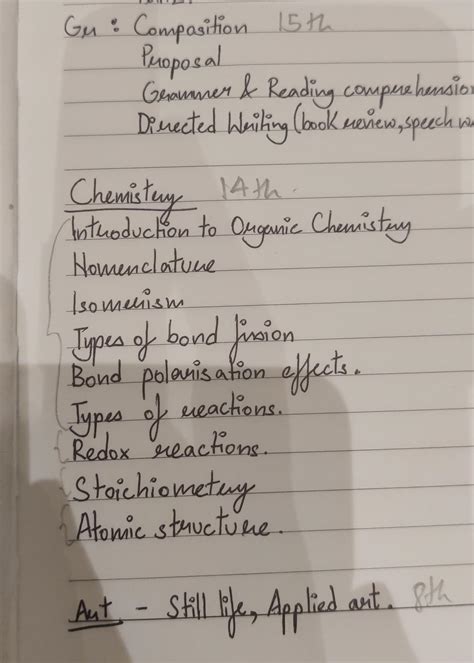 Gr : Composition 15th
Proposal
Grammer & Reading comprehension
Directed Writing (book review, speech
Chemistry 14th.
Introduction to Organic Chemistry
Nomenclature
Isomerism
Types of bond fission
Bond polarisation effects.
Types of reactions.
Redox reactions.
Stoichiometry
Atomic structure.
Art - Still life, Applied art. 8th